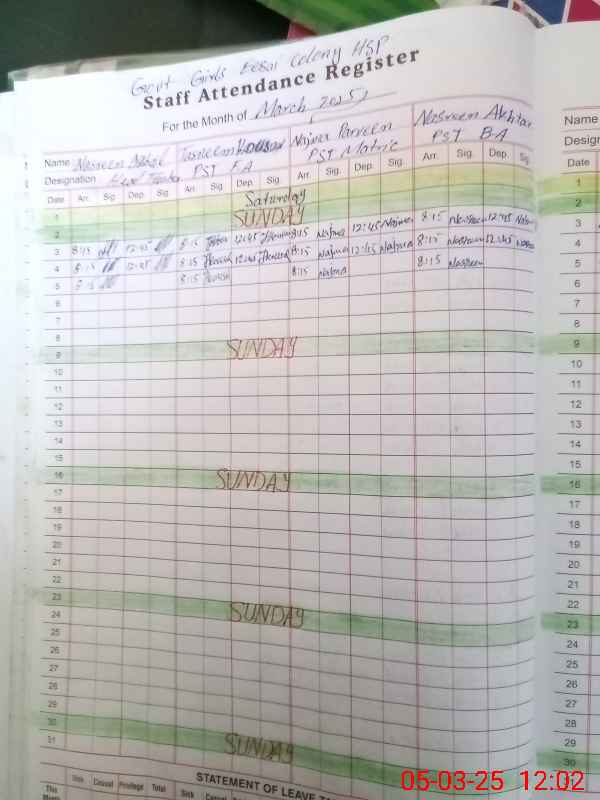 Govt Girls Colony HSP
Staff Attendance Register
For the Month of March 2025
Name Nasreen Tasneem Kousar Najma Parveen Nasreen Akhtar
Designation Head PST FA PST Matric PST BA
Date Arr. Sig. Dep. Sig. Arr. Sig. Dep. Sig. Arr. Sig. Dep. Sig. Arr. Sig. Dep. Sig.
1 Saturday
2 SUNDAY
3 8:15 12:45 8:15 12:45 8:15 Najma 12:45 Najma 8:15 Nasreen 12:45
4 8:15 12:45 8:15 12:45 8:15 Najma 12:45 Najma 8:15 Nasreen 12:45
5 8:15 8:15 8:15 Najma 8:15 Nasreen
6
7
8
9 SUNDAY
10
11
12
13
14
15
16 SUNDAY
17
18
19
20
21
22
23 SUNDAY
24
25
26
27
28
29
30 SUNDAY
31
STATEMENT OF LEAVE
This Sick Casual Privilege Total Sick
Name
Date
1
2
3
4
5
6
7
8
9
10
11
12
13
14
15
16
17
18
19
20
21
22
23
24
25
26
27
28
29
30
05-03-25 12:02